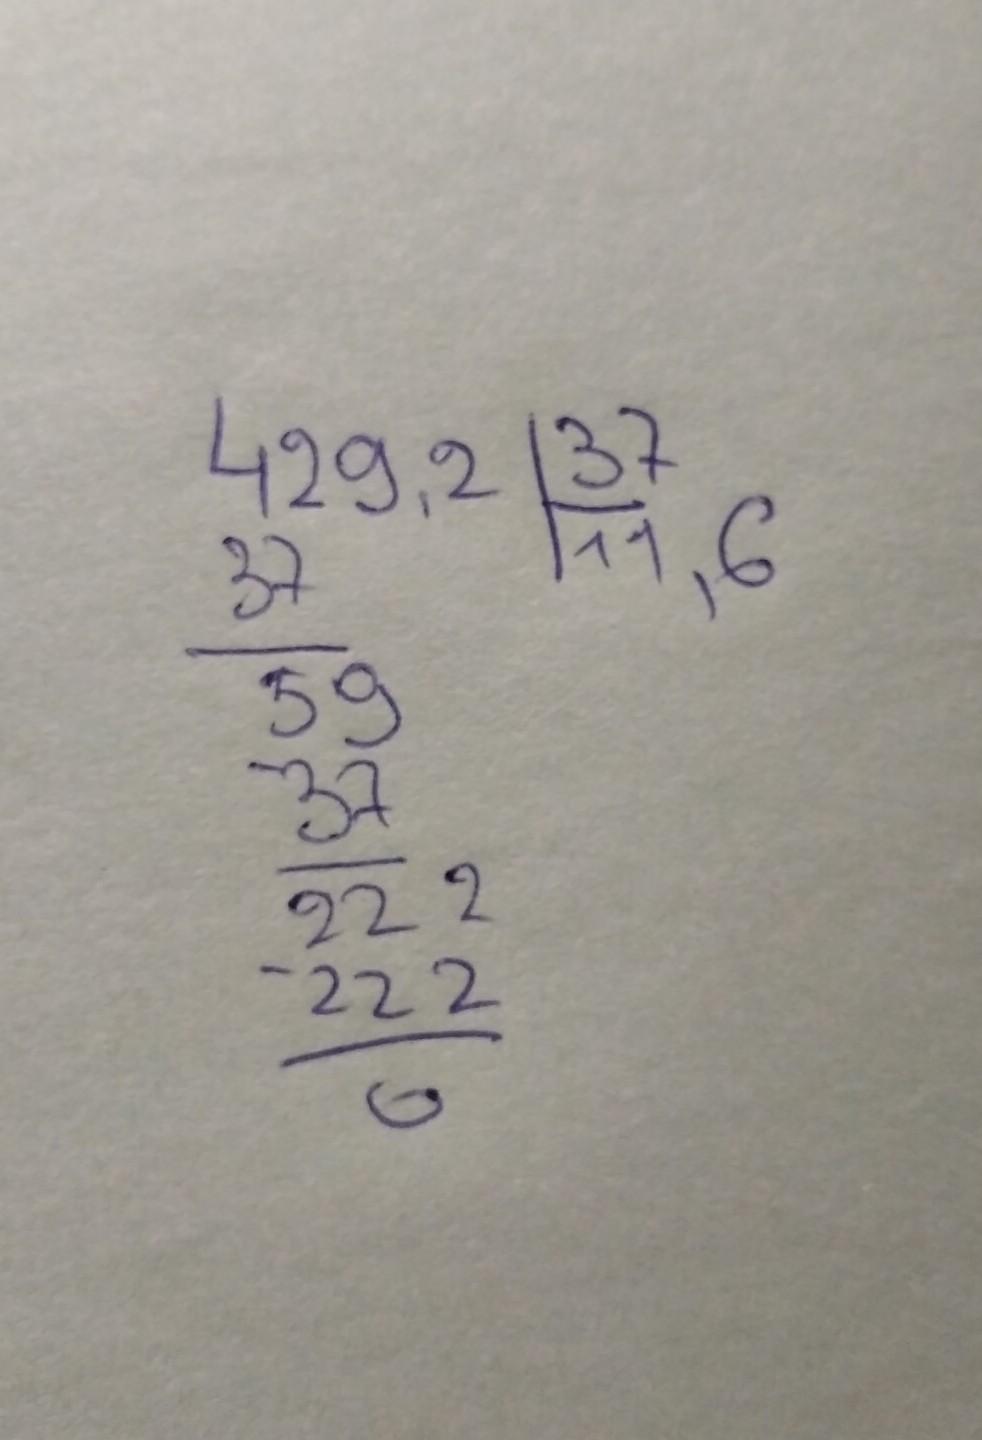 429,2 37
11,6
37
59
-37
222
-222
0